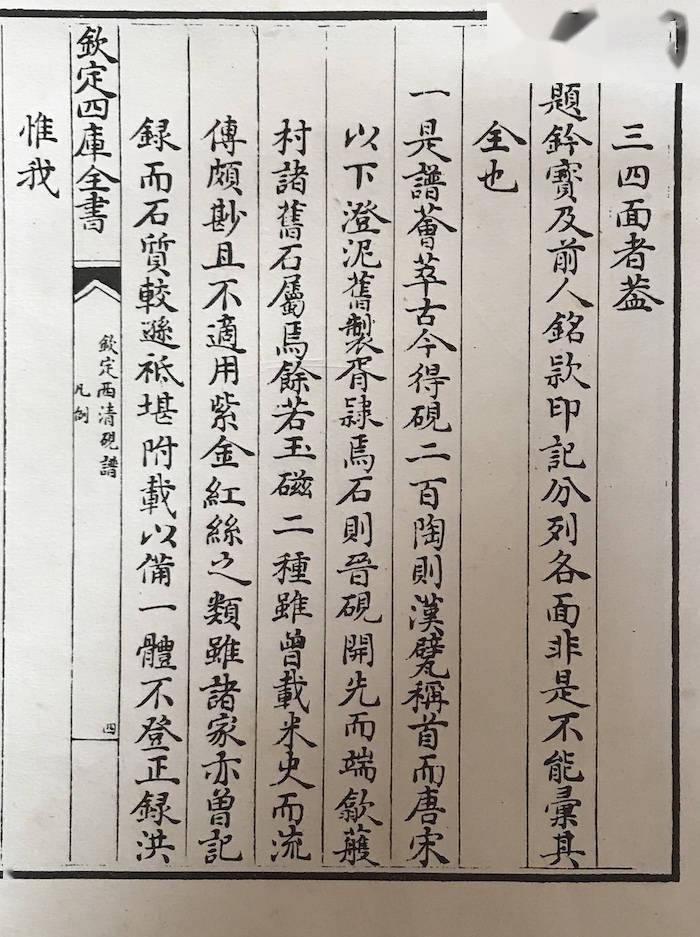 三四面者蓋
題鈐寶及前人銘款印記分列各面非是不能彙其
全也
一是譜薈萃古今得硯二百陶則漢甓稱首而唐宋
以下澄泥舊製胥隷焉石則晉硯開先而端歙蘐
村諸舊石屬焉餘若玉磁二種雖曾載米史而流
傳頗尠且不適用紫金紅絲之類雖諸家亦曾記
録而石質較遜袛堪附載以備一體不登正録洪
欽定四庫全書
欽定西清硯譜
凡例
四
惟我